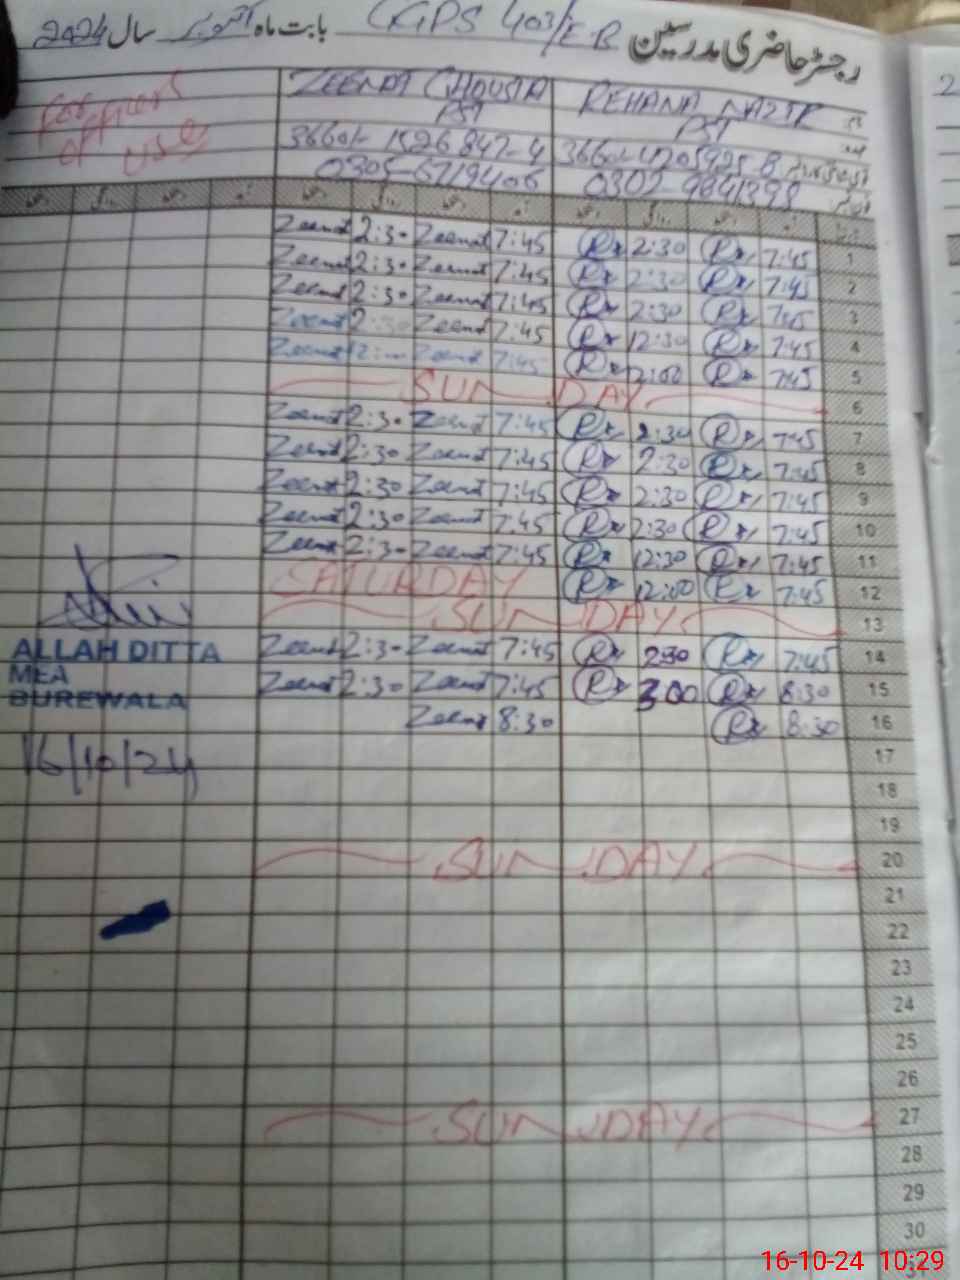 رجسٹر حاضری مدرسین GGPS 403/E-B بابت ماہ اکتوبر سال 2024
For officers of use
ZEENAT GHOUSIA REHANA NAZIR
PST PST
0302-9841398
1 Zeenat 2:30 Zeenat 7:45 R 2:30 R 7:45
2 Zeenat 2:30 Zeenat 7:45 R 2:30 R 7:45
3 Zeenat 2:30 Zeenat 7:45 R 2:30 R 7:45
4 Zeenat 2:30 Zeenat 7:45 R 12:30 R 7:45
5 Zeenat Zeenat 7:45 R 12:00 R 7:45
6 SUNDAY
7 Zeenat 2:30 Zeenat 7:45 R 2:30 R 7:45
8 Zeenat 2:30 Zeenat 7:45 R 2:30 R 7:45
9 Zeenat 2:30 Zeenat 7:45 R 2:30 R 7:45
10 Zeenat 2:30 Zeenat 7:45 R 2:30 R 7:45
11 Zeenat 2:30 Zeenat 7:45 R 12:30 R 7:45
12 SATURDAY R 12:00 R 7:45
13 SUNDAY
14 Zeenat 2:30 Zeenat 7:45 R 2:30 R 7:45
15 Zeenat 2:30 Zeenat 7:45 R 3:00 R 8:30
16 Zeenat 8:30 R 8:30
ALLAH DITTA
MEA
BUREWALA
16/10/24
17
18
19
20 SUNDAY
21
22
23
24
25
26
27 SUNDAY
28
29
30
16-10-24 10:29